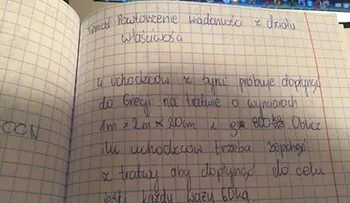 Temat: Powtórzenie wiadomości z działu
własciwosci
4 uchodzców z Syrii próbuje dopłynąć
do Grecji na tratwie o wymiarach
1m x 2m x 20cm i 800 kg. Oblicz
ilu uchodzców trzeba zepchąć
z tratwy aby dopłynąć do celu
jeśli każdy waży 60kg.
OON